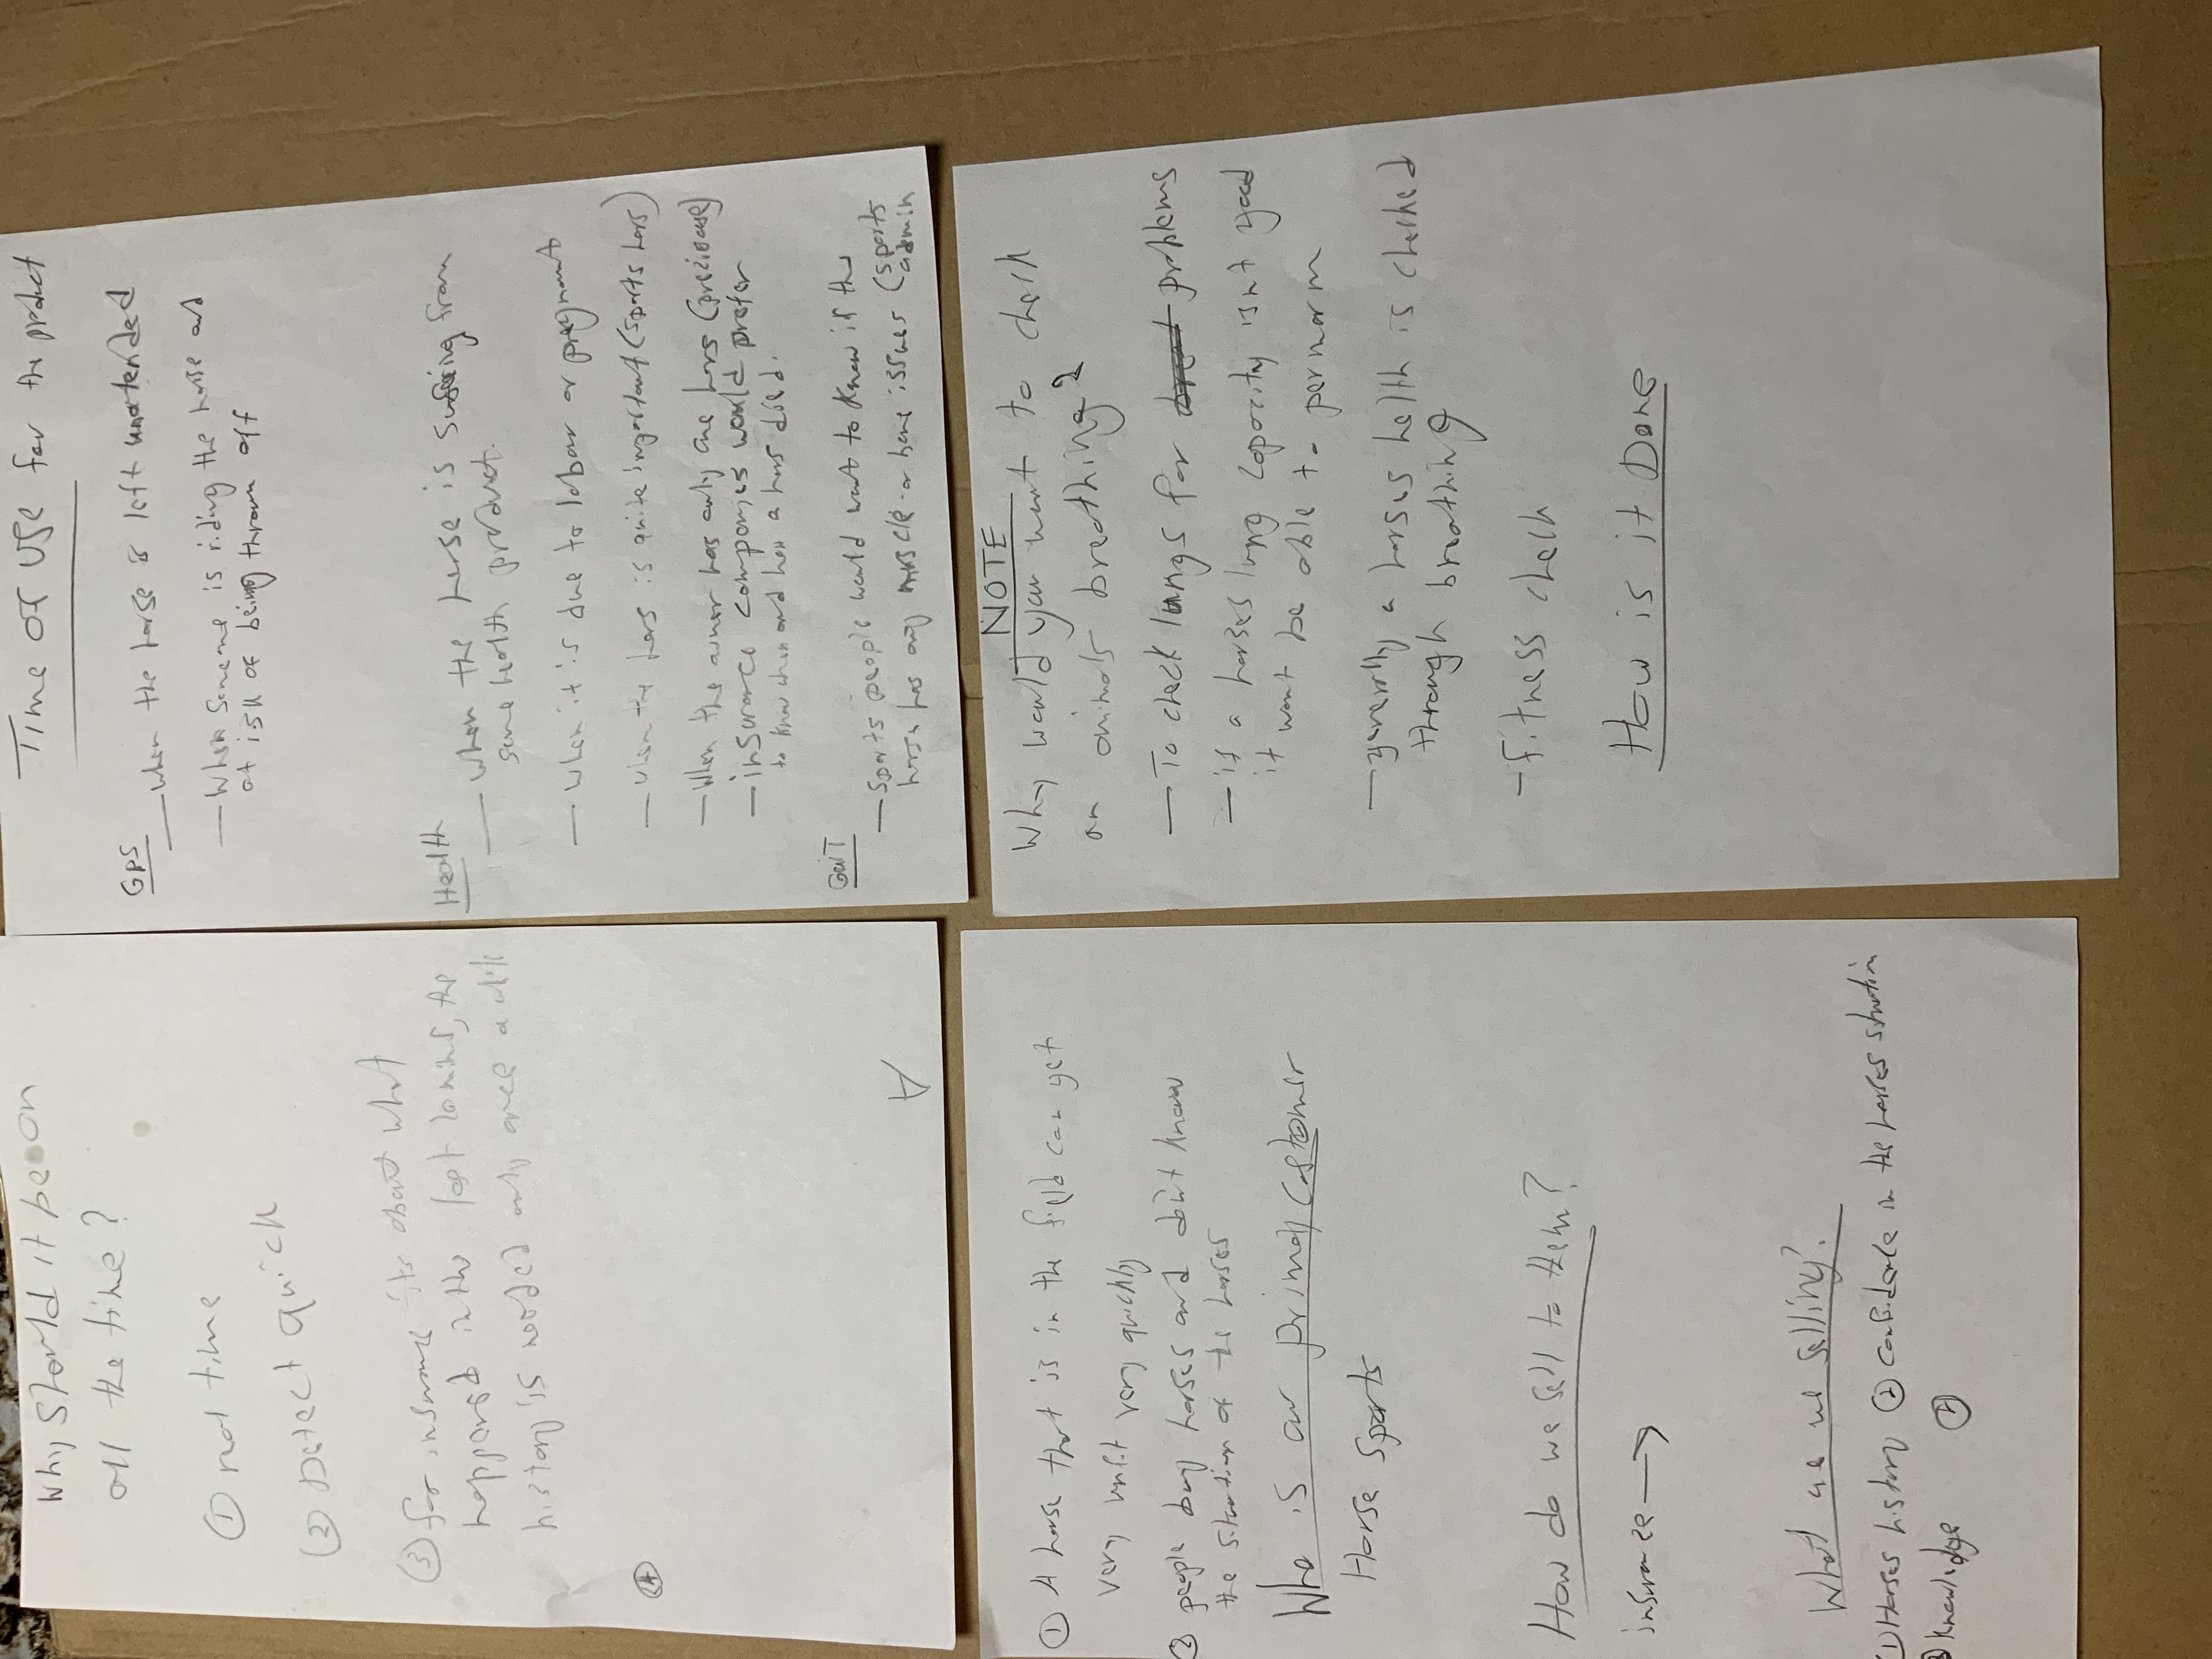 Why Shorld it be on
all the time?
① real time
② Detect quick
③ for insurance its about what
happened in the last 20 mins, the
history is needed only once a
④
Time of use for the product
GPS
— when the horse is left unatended
— When someone is riding the horse and
at risk of being thrown off
Health
— when the horse is suffering from
some health product.
— when it is due to labour or pregnant
— when the hors is quite important (sports hors)
— When the owner has only one hors (precious)
— insurance companies would prefer
to know when and how a hors died.
GaiT
— Sports people would want to know if the
horse has any muscle or bone issues (sports
admin
① A horse that is in the field can get
very unfit very quickly
② people buy horses and don't know
the situation of the horses
Who is our primary Customer
Horse Sports
How do we sell to them?
insurance →
What are we selling?
① Horses history ② confidence in the horses situation
③ Knowledge ④
NOTE
Why would you want to check
an animals breathing?
— To check lungs for problems
— if a horses lung capacity isnt good
it wont be able to permorm
— generally a horses health is checked
through breathing
— fitness check
How is it Done